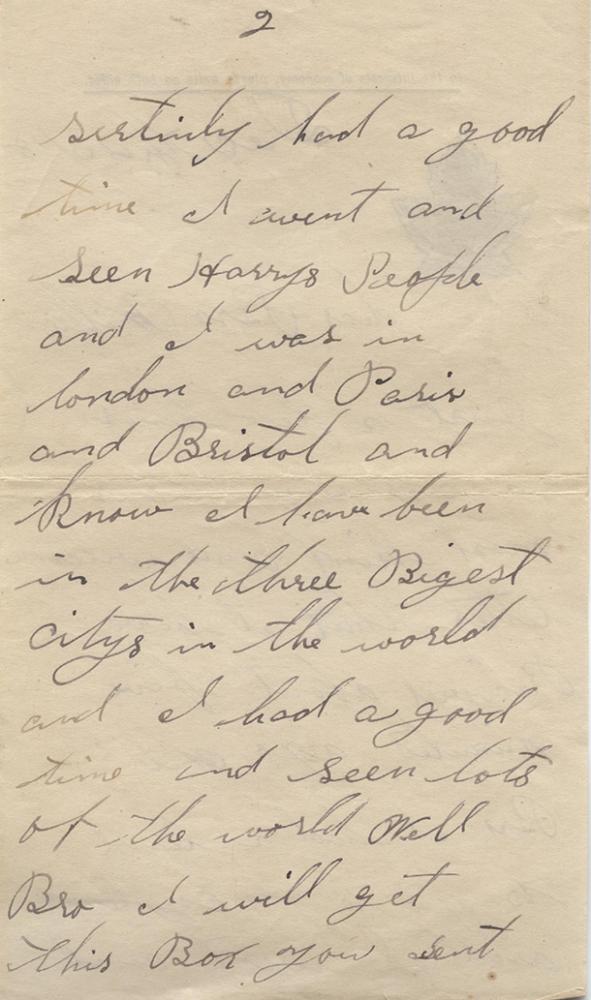 2
sertinly had a good
time I went and
seen Harrys People
and I was in
london and Paris
and Bristol and
know I have been
in the three Bigest
citys in the world
and I had a good
time and seen lots
of the world Well
Bro I will get
this Box you sent